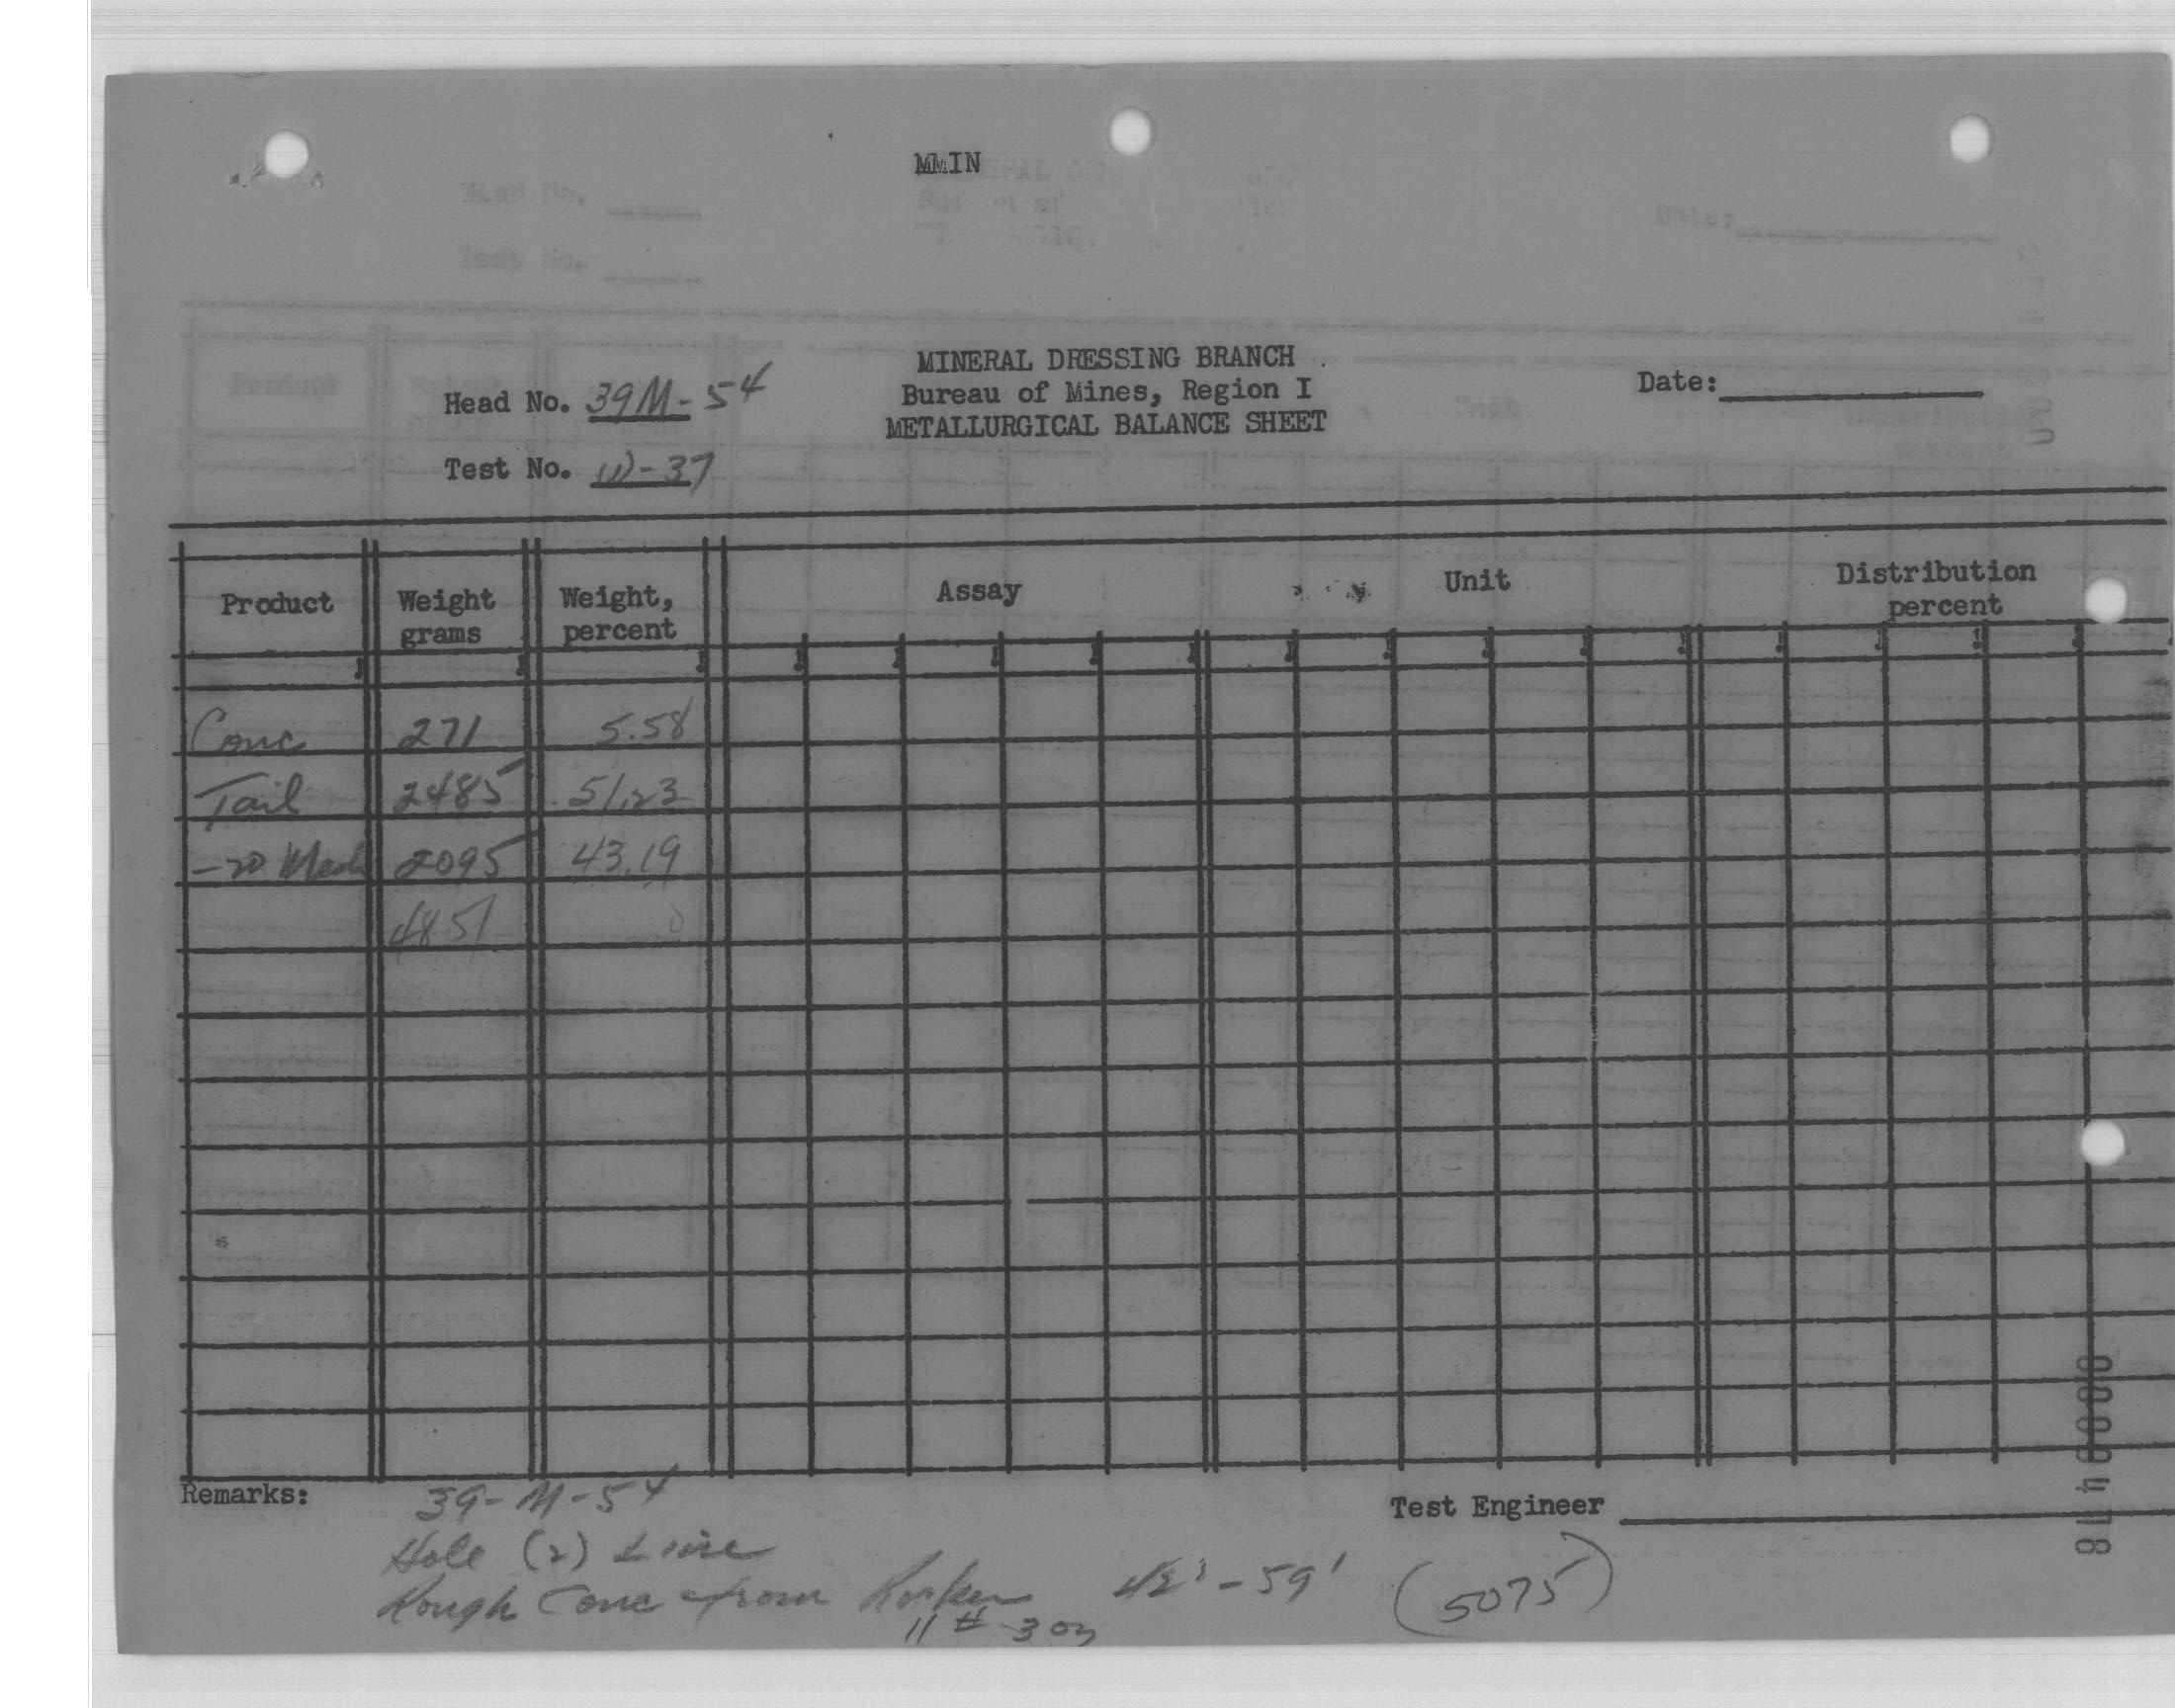 MMIN
MINERAL DRESSING BRANCH
Bureau of Mines, Region I
METALLURGICAL BALANCE SHEET
Head No. 39M-54
Test No. W-37
Date:
Product
Weight grams
Weight, percent
Assay
Unit
Distribution percent
Conc 271 5.58
Tail 2485 51.23
-20 Mesh 2095 43.19
4851
Remarks:
39-M-54
Test Engineer
Hole (2) Line
Rough Conc from Rocker 42'-59' (5075)
11# 3 oz
0000478